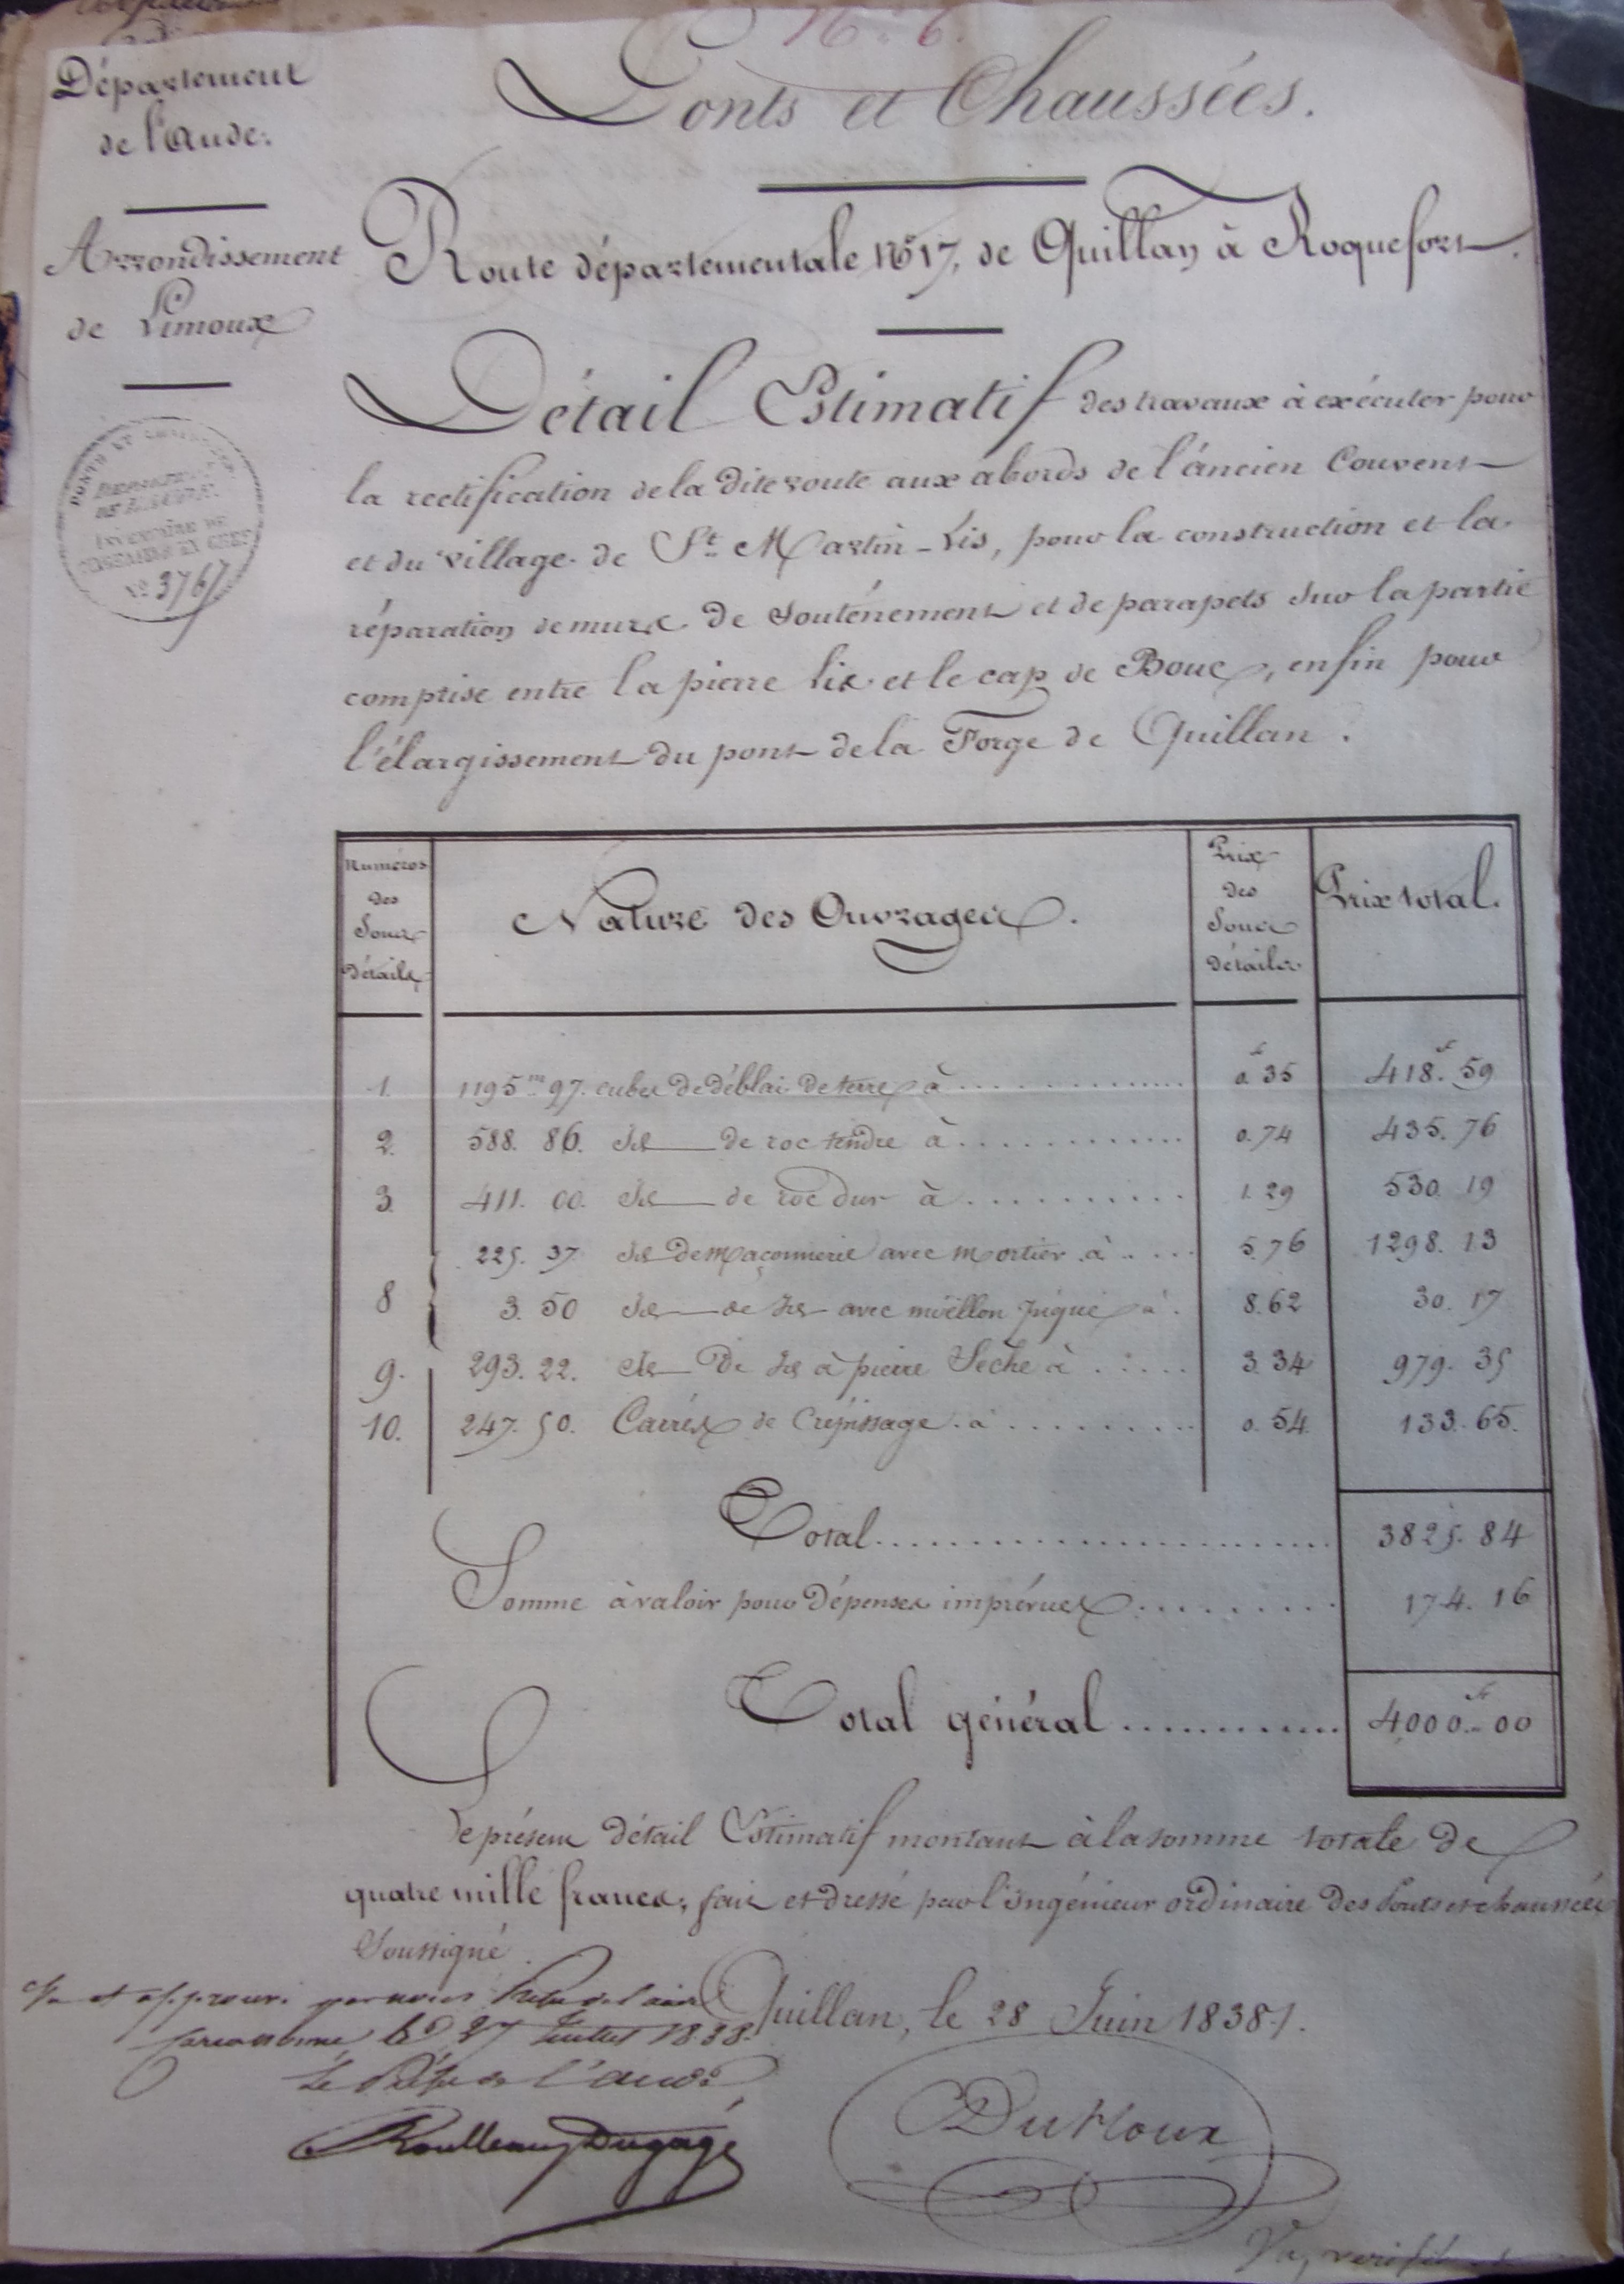 N.° 6.
Ponts et Chaussées.
Département
de l'Aude.
Arrondissement
de Limoux
PONTS ET CHAUSSÉES
INGÉNIEUR EN CHEF
N.° 3767
Route départementale N° 17, de Quillan à Roquefort.
Détail Estimatif des travaux à exécuter pour
la rectification de la dite route aux abords de l'ancien Couvent
et du village de St. Martin-Lis, pour la construction et la
réparation de murs de soutènement et de parapets sur la partie
comprise entre la pierre Lis et le cap de Bouc, enfin pour
l'élargissement du pont de la Forge de Quillan.
Numéros des Sous Détails | Nature des Ouvrages. | Prix des Sous détails | Prix total.
1. 1195m 97. cubes de déblai de terre à ............ 0.f 35 418.f 59
2. 588. 86. Id — de roc tendre à ............ 0.74 435. 76
3. 411. 00. Id — de roc dur à .......... 1.29 530. 19
225. 37 Id de maçonnerie avec mortier à .... 5.76 1298. 13
8 3. 50 Id — de Id avec moëllon piqué à . 8.62 30. 17
9. 293. 22. Id — de Id à pierre Sèche à ..... 3.34 979. 35
10. 247. 50. Carrés de Crépissage à ......... 0.54 133. 65.
Total ........................ 3825. 84
Somme à valoir pour dépenses imprévues ......... 174. 16
Total général ............ 4000.f 00
Le présent détail Estimatif montant à la somme totale de
quatre mille francs, fait et dressé par l'ingénieur ordinaire des Ponts et chaussées
Soussigné.
Quillan, le 28 Juin 1838.
Vu et approuvé par nous Préfet de l'aude
Carcassonne, le 27 Juillet 1838.
Le Préfet de l'aude
Roulleaux Dugage
DuHoux
Vu, vérifié